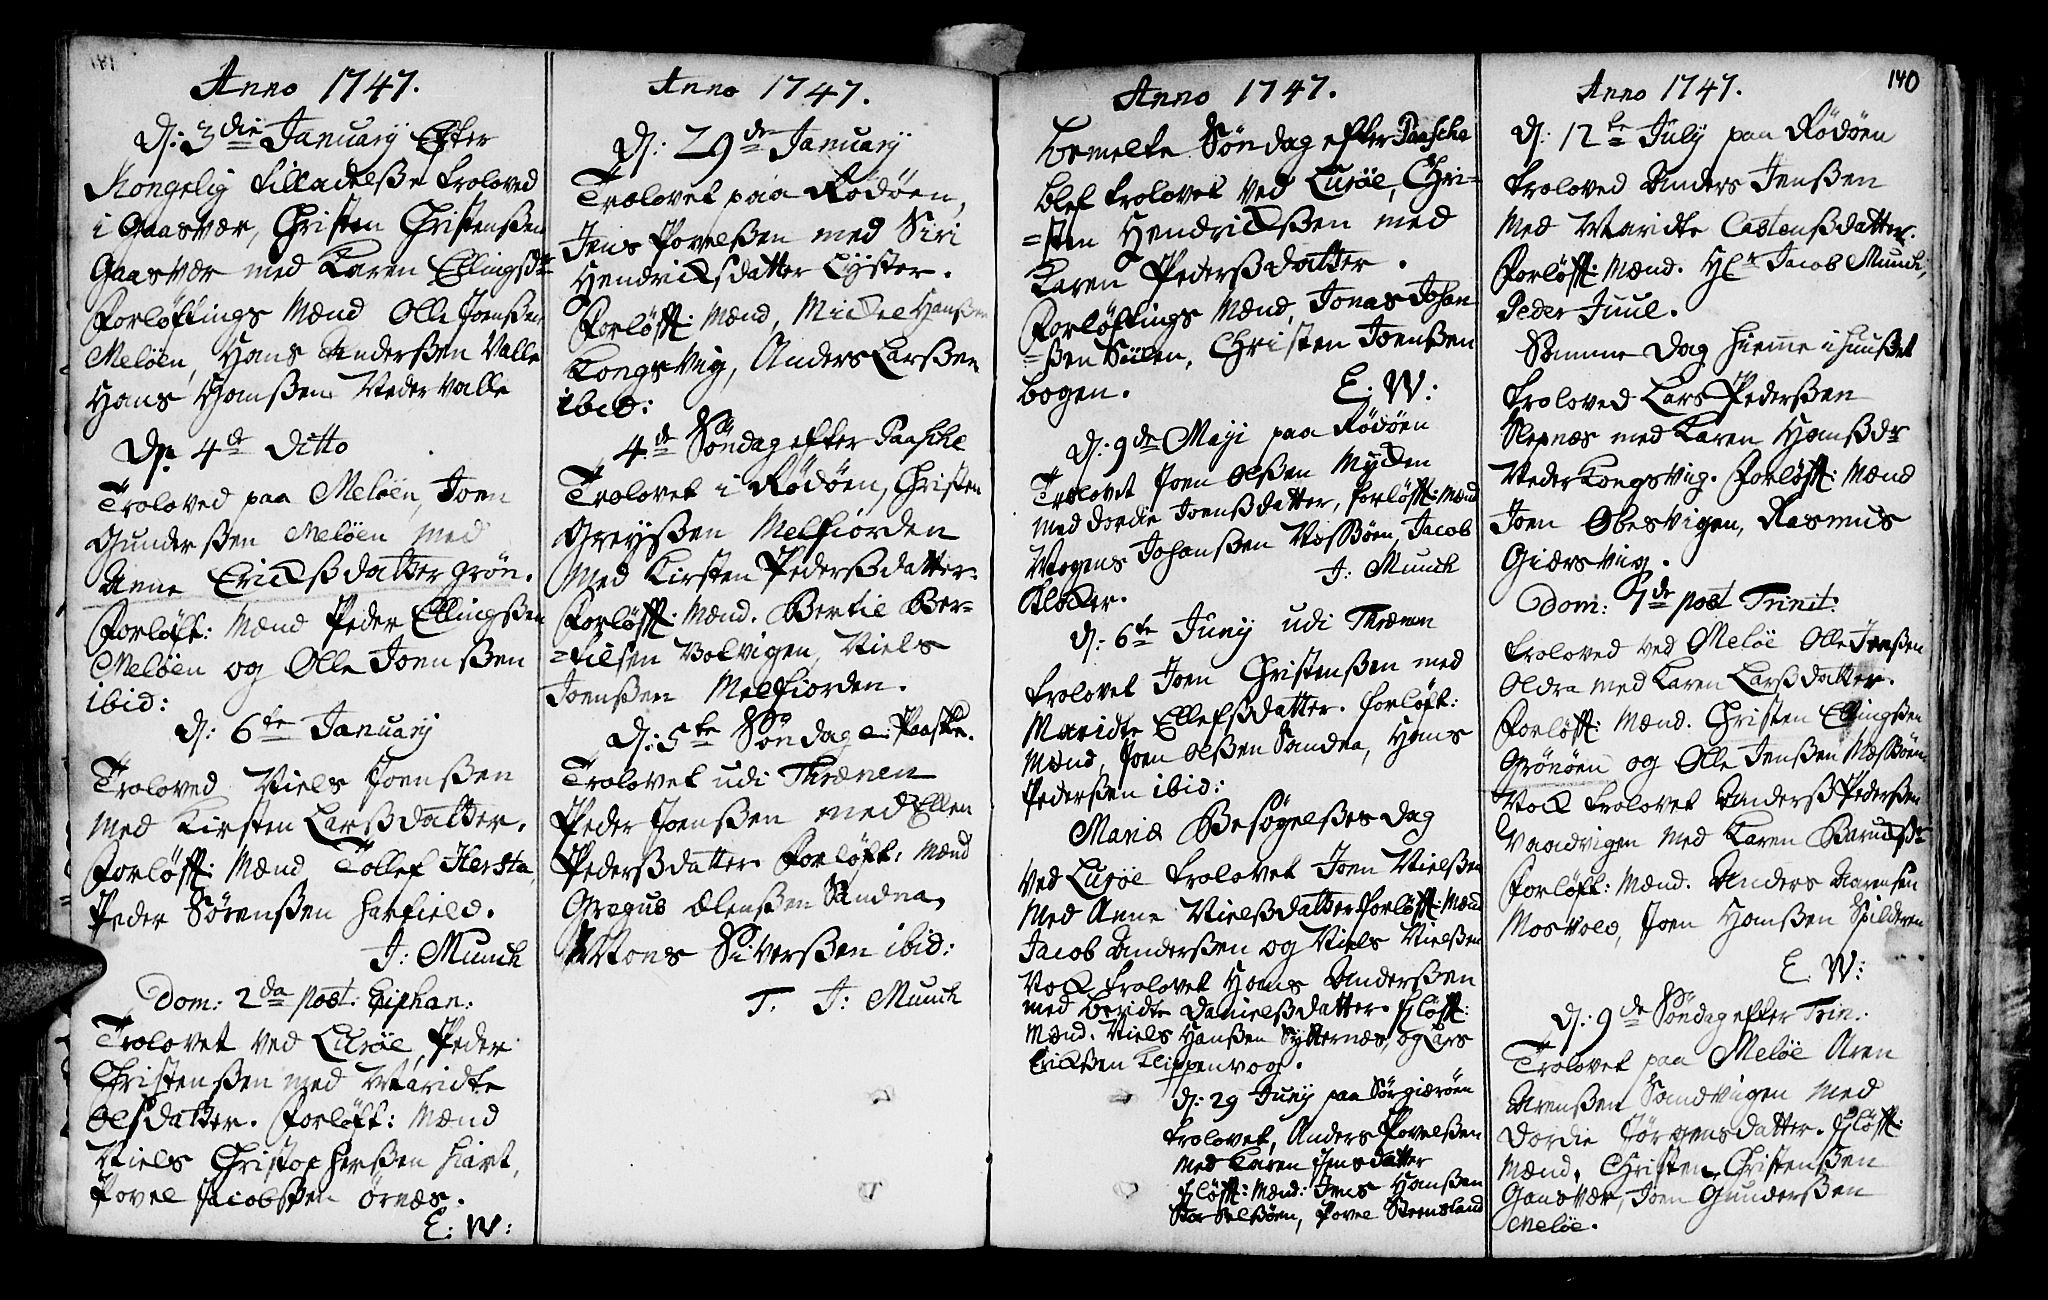 Anno 1747.
D: 3die January Efter
Kongelig tilladelsße troloved
i Gaasvær, Christen Christensßen
Gaasvær med Karen Ellingsdtr
Forløftings Mænd Olle Joensßen
Meløen, Hans Andersßen Valle
Hans Hansßen Nedervalle
D: 4de Ditto
Troloved paa Meløen Joen
Gundersßen Meløen med
Anne Ericksßdatter Grön.
Forløft: Mænd Peder Ellingsßen
Meløen og Olle Joensßen
ibid:
D: 6te January
Troloved Niels Joensßen
med Kirsten Larsßdatter.
Forløfft: Mænd Tollef Kersta,
Peder Sørensßen
J: Munch
Dom: 2da post. Epiphan:
Trolovet ved Lurøe, Peder
Christensßen med Maridte
Olsdatter. Forløft: Mænd
Niels Christophersßen hiart,
Povel Jacobsßen Ørnæs.
E: W:
Anno 1747.
D: 29de January
Trolovet paa Rödöen,
Jens Povelsßen med Siri
Hendricksdatter Lyster.
Forløfft: Mænd, Mickel Hansßen
Kongsvig, Anders Larsßen
ibid:
4de Söndag efter Paasche
Trolovet i Rödöen, Christen
Greysßen Melfiorden
med Kirsten Pedersßdatter.
Forløfft: Mænd. Bertil Ber=
=tilsen Bolvigen, Niels
Joensßen Melfiorden.
D: 5te Söndag e: Paaske.
Trolovet udi Thrænen
Peder Joensßen med Ellen
Pedersßdatter. Forløft: Mænd
Gregus Olensßen Sandna,
Mons Siversßen ibid:
T. J: Munch
Anno 1747.
bemelte Söndag efter Paasche
blef trolovet ved Lurøe, Chri=
=sten Hendricksßen med
Karen Pedersßdatter.
Forløftings Mænd, Jonas Johan
=sßen Silen, Christen Joensßen
bogen.
E: W:
D: 9de Maji paa Rödöen
Trolovet Joen Olsßen Mycken
med Dordie Joensßdatter, forløfft: Mænd
Mogens Johansßen Nosßöen, Jacob
Klocker.
J: Munch
D: 6te Juny udi Thrænen
trolovet Joen Christensßen med
Maridte Ellefsßdatter. forløft:
Mænd, Joen Olsßen Sandna, Hans
Pedersßen ibid:
Mariæ Besøgelsßes Dag
Ved Lurøe trolovet Joen Nielsßen
med Anne Nielsßdatter forløfft: Mænd
Jacob Andersßen og Niels Nielsßen
Nock trolovet Hans Andersßen
med Beridte Danielsßdatter. fløfft:
Mænd. Niels Hansßen Sytternæs, og Lars
Ericksßen Klippenvog.
D: 29 Juny paa Sörgiærøen
trolovet, Anders Povelsßen
med Karen Jensdatter
fløfft: Mænd: Jens Hansßen
Stor Selsßöen, Povel Steensland
140
Anno 1747.
D: 12te July paa Rödöen
troloved Anders Jensßen
med Maridte Castensßdatter.
Forløfft: Mænd. Hlr Jacob Munch,
Peder Juul.
Samme Dag hiemme i huusßet
troloved Lars Pedersßen
Slepnæs med Karen Hansßdr
Neder Kongsvig. Forløfft: Mænd
Joen Obesvigen, Rasmus
Giærsvig.
Dom: 7de post Trinit:
troloved ved Meløe Olle Jensßen
Oldra med Karen Larsßdatter.
Forløfft: Mænd. Christen Ellingsßen
Grönöen og Olle Jensßen Mesßöen
Nock trolovet Andersß Pedersßen
Vaadvigen med Karen
Forløft: Mænd. Anders Arensen
Mosvold, Joen Hansßen Spilderen
E. W:
D: 9de Söndag efter Trin:
Trolovet paa Meløe Aren
Arensßen Sandvigen med
Dordie Jörgensdatter. fløfft:
Mænd, Christen Christensßen
Gaasvær, Joen Gundersßen
Meløe.